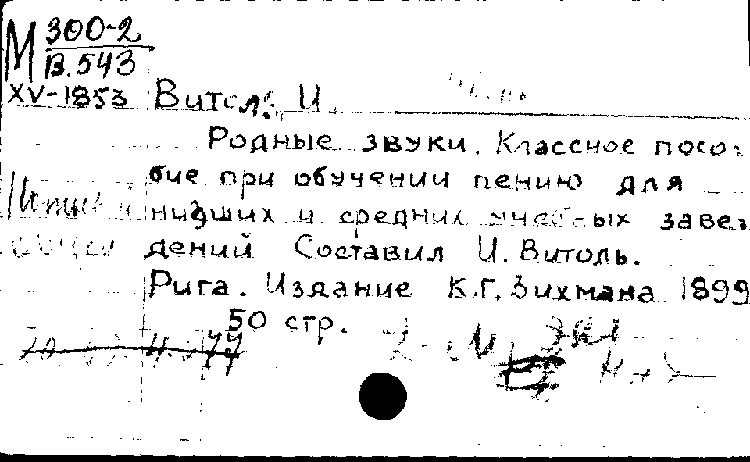 М 300-2
В.543
XV-1853 Витол, И.
Родные звуки. Классное посо-
бие при обучении пению для
низших и средних учебных заве-
дений Составил И. Витоль.
Рига. Издание К.Г. Зихмана 1899
50 стр.
2